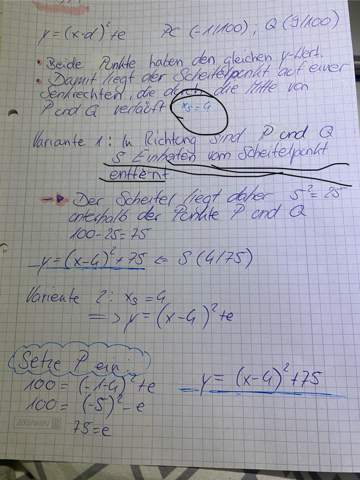 y = (x-d)²+e P(-1|100), Q(9|100)
• Beide Punkte haben den gleichen y-Wert.
• Damit liegt der Scheitelpunkt auf einer
Senkrechten, die durch die Mitte von
P und Q verläuft xs=4
Variante 1: In Richtung sind P und Q
5 Einheiten vom Scheitelpunkt
entfernt
→ Der Scheitel liegt daher 5²=25
unterhalb der Punkte P und Q
100-25=75
y=(x-4)²+75 ⇐ S(4|75)
Variante 2: xs=4
⇒ y=(x-4)²+e
Setze P ein:
100=(-1-4)²+e y=(x-4)²+75
100=(-5)²-e
75=e